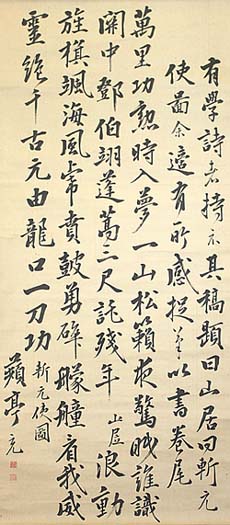 有學詩者持示其稿題曰山居曰斬元
使圖余適有所感捉筆以書卷尾
萬里功勲時入夢一山松籟夜驚眠誰識
關中鄧伯翊蓬蒿三尺託殘年 山居 浪動
旌旗颯海風虎賁鼓勇碎艨艟看我威
靈絶千古元由龍口一刀功
斬元使圖
蘋亭元